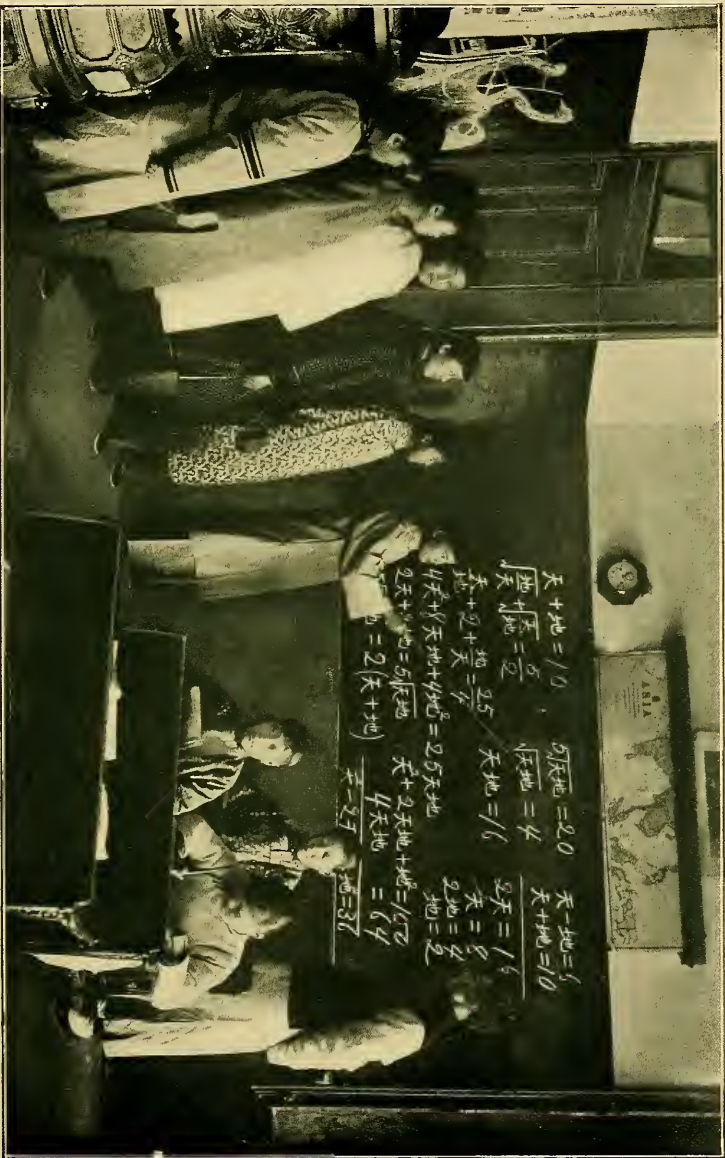 ASIA
天+地=10
√地/天+√天/地=5/2
天/地+2+地/天=25/4
4天²+8天地+4地²=25天地
2天+2地=5√天地
=2(天+地)
5√天地=20
√天地=4
天地=16
天²+2天地+地²=100
4天地=64
天²-2天 地²=36
天-地=6
天+地=10
2天=16
天=8
2地=4
地=2